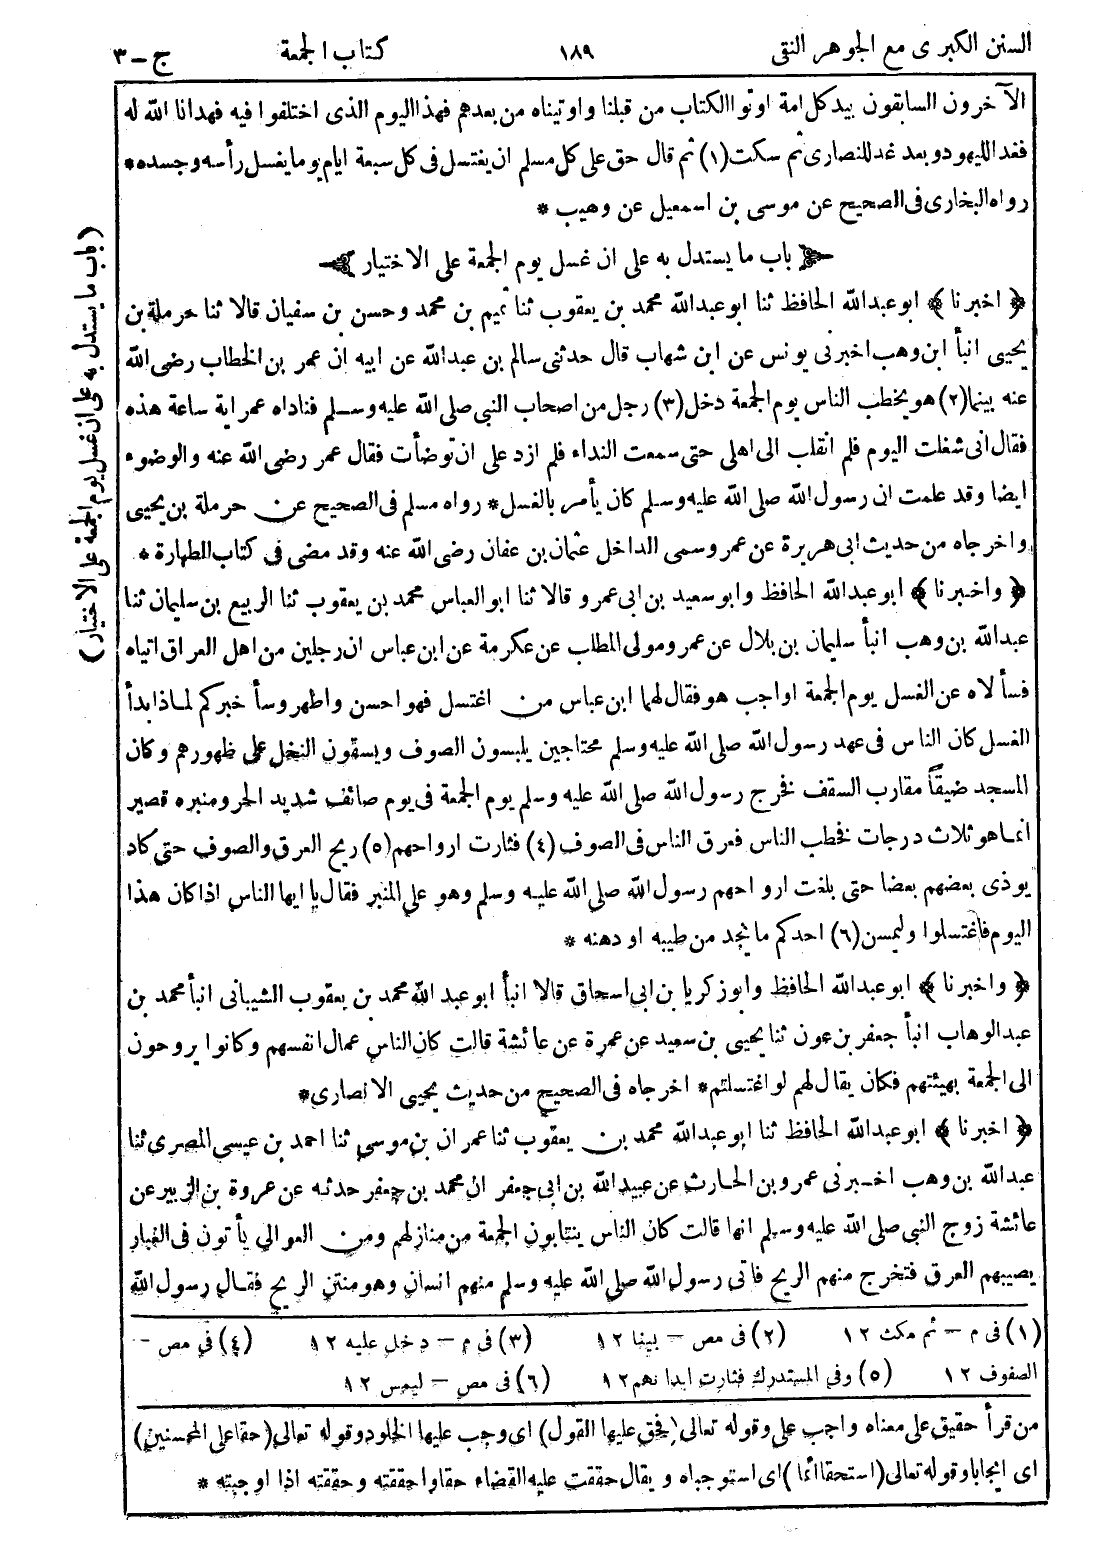 السنن الكبرى مع الجوهر النقى ١٨٩ كتاب الجمعة ج - ٣
الآخرون السابقون بيد كل امة اوتوا الكتاب من قبلنا واوتيناه من بعدهم فهذا اليوم الذى اختلفوا فيه فهدانا الله له
فغد اليهود وبعد غد للنصارى ثم سكت (١) ثم قال حق على كل مسلم ان يغتسل فى كل سبعة ايام يوما يغسل رأسه وجسده *
رواه البخارى فى الصحيح عن موسى بن اسمعيل عن وهيب *
باب ما يستدل به على ان غسل يوم الجمعة على الاختيار
(باب ما يستدل به على ان غسل يوم الجمعة على الاختيار)
﴿ اخبرنا ﴾ ابو عبدالله الحافظ ثنا ابو عبدالله محمد بن يعقوب ثنا تميم بن محمد وحسن بن سفيان قالا ثنا حرملة بن
يحيى انبأ ابن وهب اخبرنى يونس عن ابن شهاب قال حدثنى سالم بن عبدالله عن ابيه ان عمر بن الخطاب رضى الله
عنه بينما (٢) هو يخطب الناس يوم الجمعة دخل (٣) رجل من اصحاب النبى صلى الله عليه وسلم فناداه عمر اية ساعة هذه
فقال انى شغلت اليوم فلم انقلب الى اهلى حتى سمعت النداء فلم ازد على ان توضأت فقال عمر رضى الله عنه والوضوء
ايضا وقد علمت ان رسول الله صلى الله عليه وسلم كان يأمر بالغسل * رواه مسلم فى الصحيح عن حرملة بن يحيى
واخرجاه من حديث ابى هريرة عن عمر وسمى الداخل عثمان بن عفان رضى الله عنه وقد مضى فى كتاب الطهارة *
﴿ واخبرنا ﴾ ابو عبدالله الحافظ وابو سعيد بن ابى عمرو قالا ثنا ابو العباس محمد بن يعقوب ثنا الربيع بن سليمان ثنا
عبدالله بن وهب انبأ سليمان بن بلال عن عمرو مولى المطلب عن عكرمة عن ابن عباس ان رجلين من اهل العراق اتياه
فسألاه عن الغسل يوم الجمعة اواجب هو فقال لهما ابن عباس من اغتسل فهو احسن واطهر وسأخبركم لماذا بدأ
الغسل كان الناس فى عهد رسول الله صلى الله عليه وسلم محتاجين يلبسون الصوف ويسقون النخل على ظهورهم وكان
المسجد ضيقاً مقارب السقف فخرج رسول الله صلى الله عليه وسلم يوم الجمعة فى يوم صائف شديد الحر ومنبره قصير
انما هو ثلاث درجات فخطب الناس فعرق الناس فى الصوف (٤) فثارت ارواحهم (٥) ريح العرق والصوف حتى كاد
يوذى بعضهم بعضا حتى بلغت ارواحهم رسول الله صلى الله عليه وسلم وهو على المنبر فقال يا ايها الناس اذا كان هذا
اليوم فاغتسلوا وليمسن (٦) احدكم ما يجد من طيبه او دهنه *
﴿ واخبرنا ﴾ ابو عبدالله الحافظ وابو زكريا بن ابى اسحاق قالا انبأ ابو عبد الله محمد بن يعقوب الشيبانى انبأ محمد بن
عبدالوهاب انبأ جعفر بن عون ثنا يحيى بن سعيد عن عمرة عن عائشة قالت كان الناس عمال انفسهم وكانوا يروحون
الى الجمعة بهيئتهم فكان يقال لهم لو اغتسلتم * اخرجاه فى الصحيح من حديث يحيى الانصارى *
﴿ اخبرنا ﴾ ابو عبدالله الحافظ ثنا ابو عبدالله محمد بن يعقوب ثنا عمران بن موسى ثنا احمد بن عيسى المصرى ثنا
عبدالله بن وهب اخبرنى عمرو بن الحارث عن عبيد الله بن ابى جعفر ان محمد بن جعفر حدثه عن عروة بن الزبير عن
عائشة زوج النبى صلى الله عليه وسلم انها قالت كان الناس ينتابون الجمعة من منازلهم ومن العوالى يأتون فى الغبار
يصيبهم العرق فتخرج منهم الريح فاتى رسول الله صلى الله عليه وسلم منهم انسان وهو منتن الريح فقال رسول الله
(١) فى م - ثم مكث ١٢ (٢) فى مص - بينا ١٢ (٣) فى م - دخل عليه ١٢ (٤) فى مص -
الصفوف ١٢ (٥) وفى المستدرك فثارت ابدانهم ١٢ (٦) فى مص - ليمس ١٢
من قرأ حقيق على معناه واجب على وقوله تعالى (فحق عليها القول) اى وجب عليها الخلود وقوله تعالى (حقا على المحسنين)
اى ايجابا وقوله تعالى (استحقا اثما) اى استوجباه و يقال حققت عليه القضاء حقا واحققته و حققته اذا اوجبته *